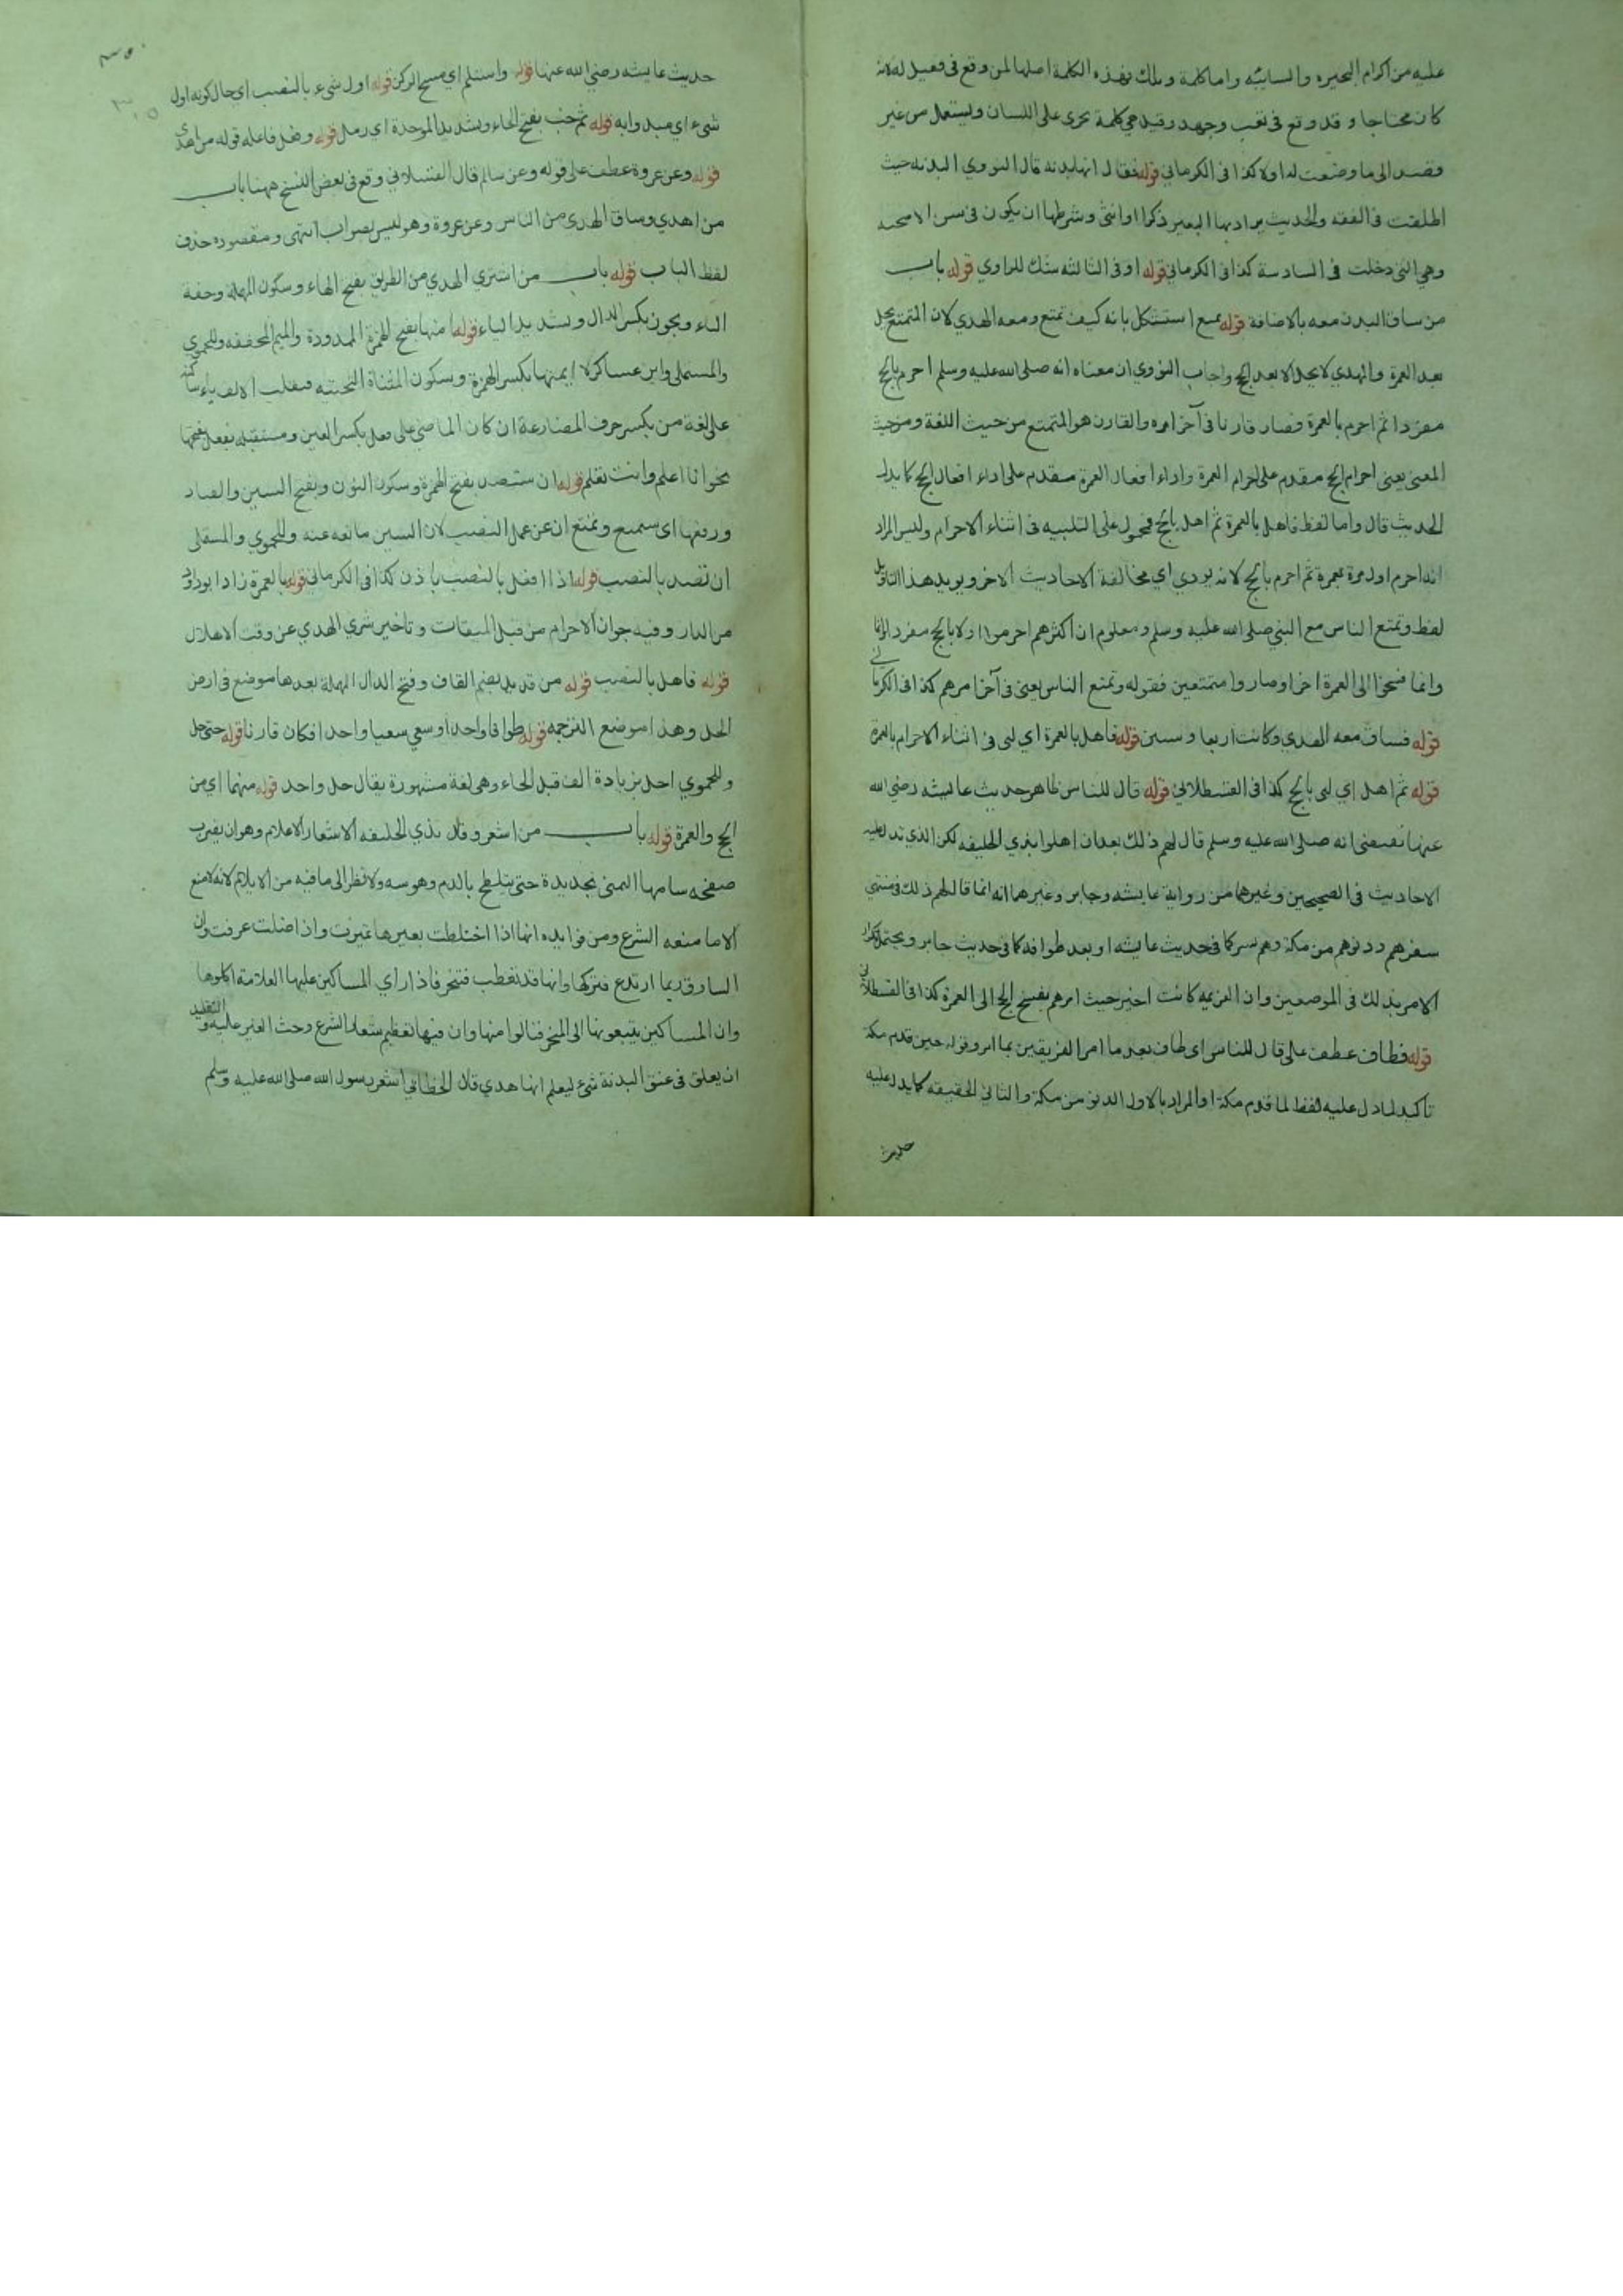 عليه من اكرام البحيره والسائبه واما كلمة ويلك فهذه الكلمة اصلها لمن وقع في فقيل له لانه
كان محتاجا وقد وقع في تعب وجهد وقيل هي كلمة تجري على اللسان وليستعمل من غير
قصد الى ما وضعت له اولا كذا في الكرماني قوله فقال انها بدنه قال النووي البدنه حيث
اطلقت في الفقه والحديث يراد بها البعير ذكرا او انثى وشرطها ان يكون في سن الاضحيه
وهي التي دخلت في السادسة كذا في الكرماني قوله او في الثالثه شك للراوي قوله باب
من ساق البدن معه بالاضافة قوله تمتع استشكل بانه كيف تمتع ومعه الهدي لان المتمتع يحل
بعد العمرة والهدي لا يحل الا بعد الحج واجاب النووي ان معناه انه صلى الله عليه وسلم احرم بالحج
مفردا ثم احرم بالعمرة فصار قارنا في آخر امره والقارن هو المتمتع من حيث اللغة ومن حيث
المعنى يعني احرام الحج مقدم على احرام العمرة واداء افعال العمرة مقدم على اداء افعال الحج كما يدل
الحديث قال واما لفظ فاهل بالعمرة ثم اهل بالحج فمحمول على التلبيه في اثناء الاحرام وليس المراد
انه احرم اول مرة بعمرة ثم احرم بالحج لانه يودي اي مخالفة الاحاديث الاخر ويويد هذا التاويل
لفظ وتمتع الناس مع النبي صلى الله عليه وسلم ومعلوم ان اكثرهم احرموا اولا بالحج مفردا
وانما فسخوا الى العمرة اخرا وصاروا متمتعين فقوله وتمتع الناس يعني في آخر امرهم كذا في الكرماني
قوله فساق معه الهدي وكانت اربعا وستين قوله فاهل بالعمرة اي لبى في اثناء الاحرام بالعمرة
قوله ثم اهل اي لبى بالحج كذا في القسطلاني قوله قال للناس ظاهر حديث عايشه رضي الله
عنها تقتضي انه صلى الله عليه وسلم قال لهم ذلك بعد ان اهلوا بذي الحليفه لكن الذي تدل عليه
الاحاديث في الصحيحين وغيرهما من رواية عايشه وجابر وغيرهما انه انما قال لهم ذلك في منتهى
سفرهم ودنوهم من مكة وهم بسرف كما في حديث عايشه او بعد طوافه كما في حديث جابر ويحتمل تكرار
الامر بذلك في الموضعين وان العزيمه كانت اخير حيث امرهم بفسخ الحج الى العمرة كذا في القسطلاني
قوله فطاف عطف على قال للناس اي طاف بعد ما امر الفريقين بما امر وقوله حين قدم مكة
تاكيد لما دل عليه لفظ لما قدم مكة او المراد بالاول الدنو من مكة والثاني الحقيقه كما يدل عليه
حديث
حديث عايشه رضي الله عنها قوله واستلم اي مسح الركن قوله اول شيء بالنصب اي حال كونه اول
شيء اي مبدوا به قوله ثم خب بفتح الخاء وبشديد الموحدة اي رمل قوله وفعل فاعله قوله من اهدى
قوله وعن عروة عطف على قوله وعن سالم قال القسطلاني وقع في بعض النسخ ههنا باب
من اهدي وساق الهدي من الناس وعن عروة وهو ليس بصواب انتهى ومقصوده حذف
لفظ الباب قوله باب من اشترى الهدي من الطريق بفتح الهاء وسكون المهملة وخفة
الياء ويجوز بكسر الدال وبشديد الياء قوله امنها بفتح الهمزة الممدودة والميم المخففه وللحموي
والمستملي وابن عساكر لا ايمنها بكسر الهمزة وبسكون المثناة التحتيه فقلب الالف ياء ساكنة
على لغة من يكسر حرف المضارعة ان كان الماضي على فعل بكسر العين ومستقبله يفعل بفتحها
نحو انا اعلم وانت تعلم قوله ان ستصد بفتح الهمزة وسكون النون وبفتح السين والصاد
ورفعها اي ستمنع وتمتنع ان عن عمل النصب لان السين مانعه عنه وللحموي والمستملي
ان تصد بالنصب قوله اذا افعل بالنصب باذن كذا في الكرماني قوله بالعمرة زاد ابو داود
من الدار وفيه جواز الاحرام من قبل الميقات وتاخير شري الهدي عن وقت الاهلال
قوله فاهل بالنصب قوله من قديد بضم القاف وفتح الدال المهملة بعدها موضع في ارض
الحل وهذا موضع الترجمه قوله طوافا واحدا وسعي سعيا واحدا فكان قارنا قوله حتى حل
وللحموي احل بزيادة الف قبل الحاء وهي لغة مشهورة يقال حل واحل قوله منهما اي من
الحج والعمرة قوله باب من اشعر وقلد بذي الحليفه الاشعار الاعلام وهو ان يضرب
صفحه سنامها اليمنى بحديدة حتى يتلطخ بالدم وهو سنة ولا نظر الى ما فيه من الايلام لانه لا منع
الا ما منعه الشرع ومن فوايده انها اذا اختلطت بغيرها تميزت واذا ضلت عرفت وان
السارق ربما ارتدع فتركها وانها قد تعطب فتنحر فاذا راي المساكين عليها العلامة اكلوها
وان المساكين يتبعونها الى المنحر فنالوا منها وان فيها تعظيم شعار الشرع وحث الغير عليه والتقليد
ان يعلق في عنق البدنة شيء ليعلم انها هدي قال الخطابي اشعر رسول الله صلى الله عليه وسلم